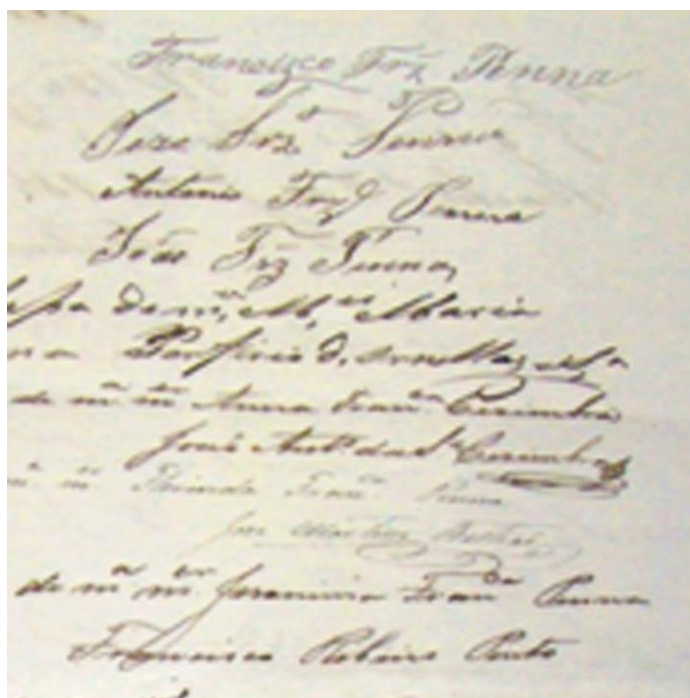 Francisco Frz Penna
Joze Frz Penna
Antonio Frz Penna
João Frz Penna
de m.er M.el Maria
Porfirio d'Ornellas
de m.a m.er Anna Fran.ca Corimba
José Ant.o da Corimba
Florinda Fran.ca Penna
José Martins
de m.a m.er Jeronima Fran.ca Penna
Francisco Ribeiro Pinto